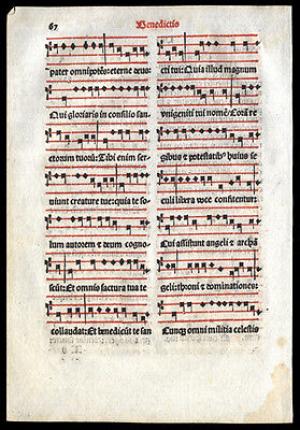 67
Benedictio
pater omnipotēs: eterne deus:
Qui gloriaris in consilio san-
ctorum tuorū: Tibi enim ser-
viunt creature tue: quia te so-
lum autorem et deum cogno-
scūt: Et omnis factura tua te
collaudat: Et benedicūt te san
cti tui: Quia illud magnum
unigeniti tui nomē: Corā re
gibus et potestatibus huius se
culi libera voce confitentur:
Qui assistunt angeli et archā
geli: throni et dominationes:
Cumque omni militia celestis